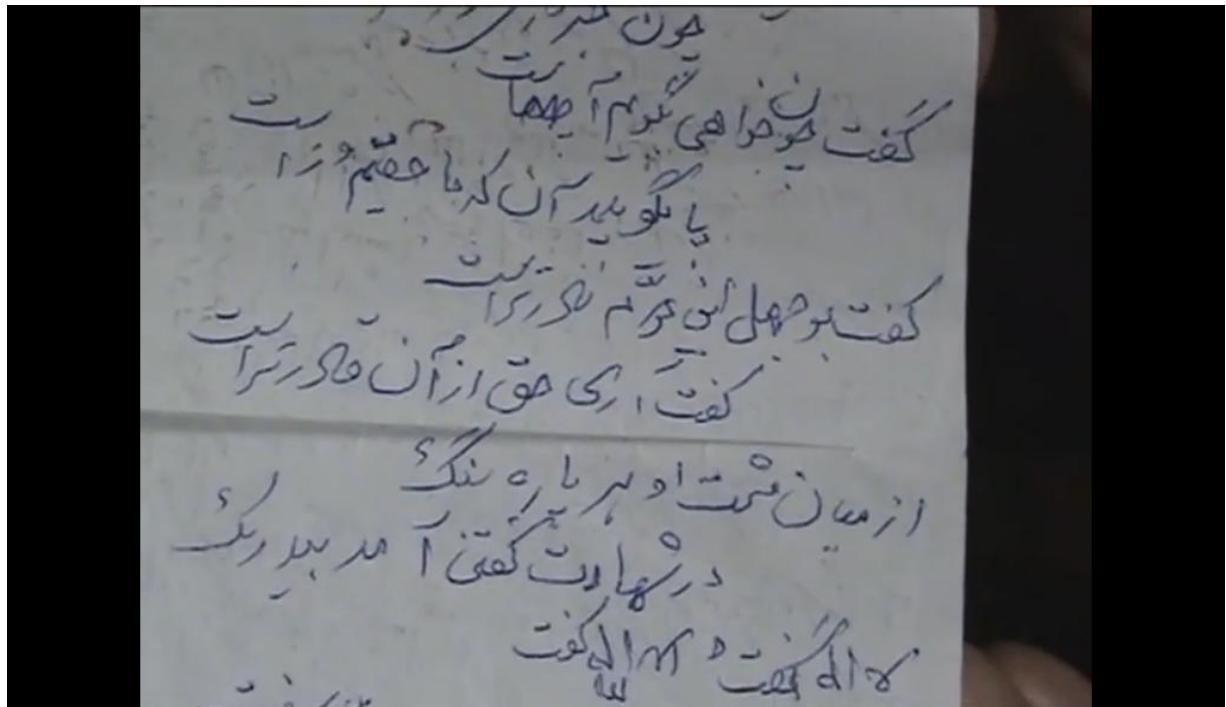 چون
گفت چون خواهی بگویم آن چهاست
یا بگویند آن که ما حقیم و راست
گفت بوجهل این دوم نادرتر است
گفت آری حق از آن قادرتر است
از میان مشت او هر پاره سنگ
در شهادت گفتن آمد بیدرنگ
لا اله گفت و الا الله گفت